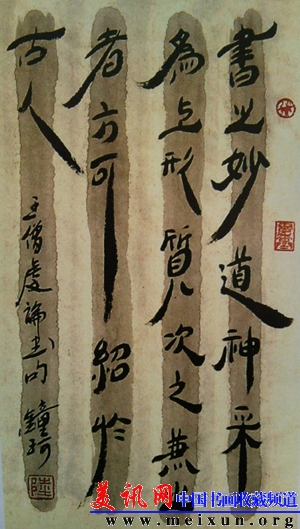 書之妙道神采
為上形質次之兼之
者方可紹於
古人
王僧虔論书句 鐘珂
陸
美讯网 中国书画收藏频道
www.meixun.org